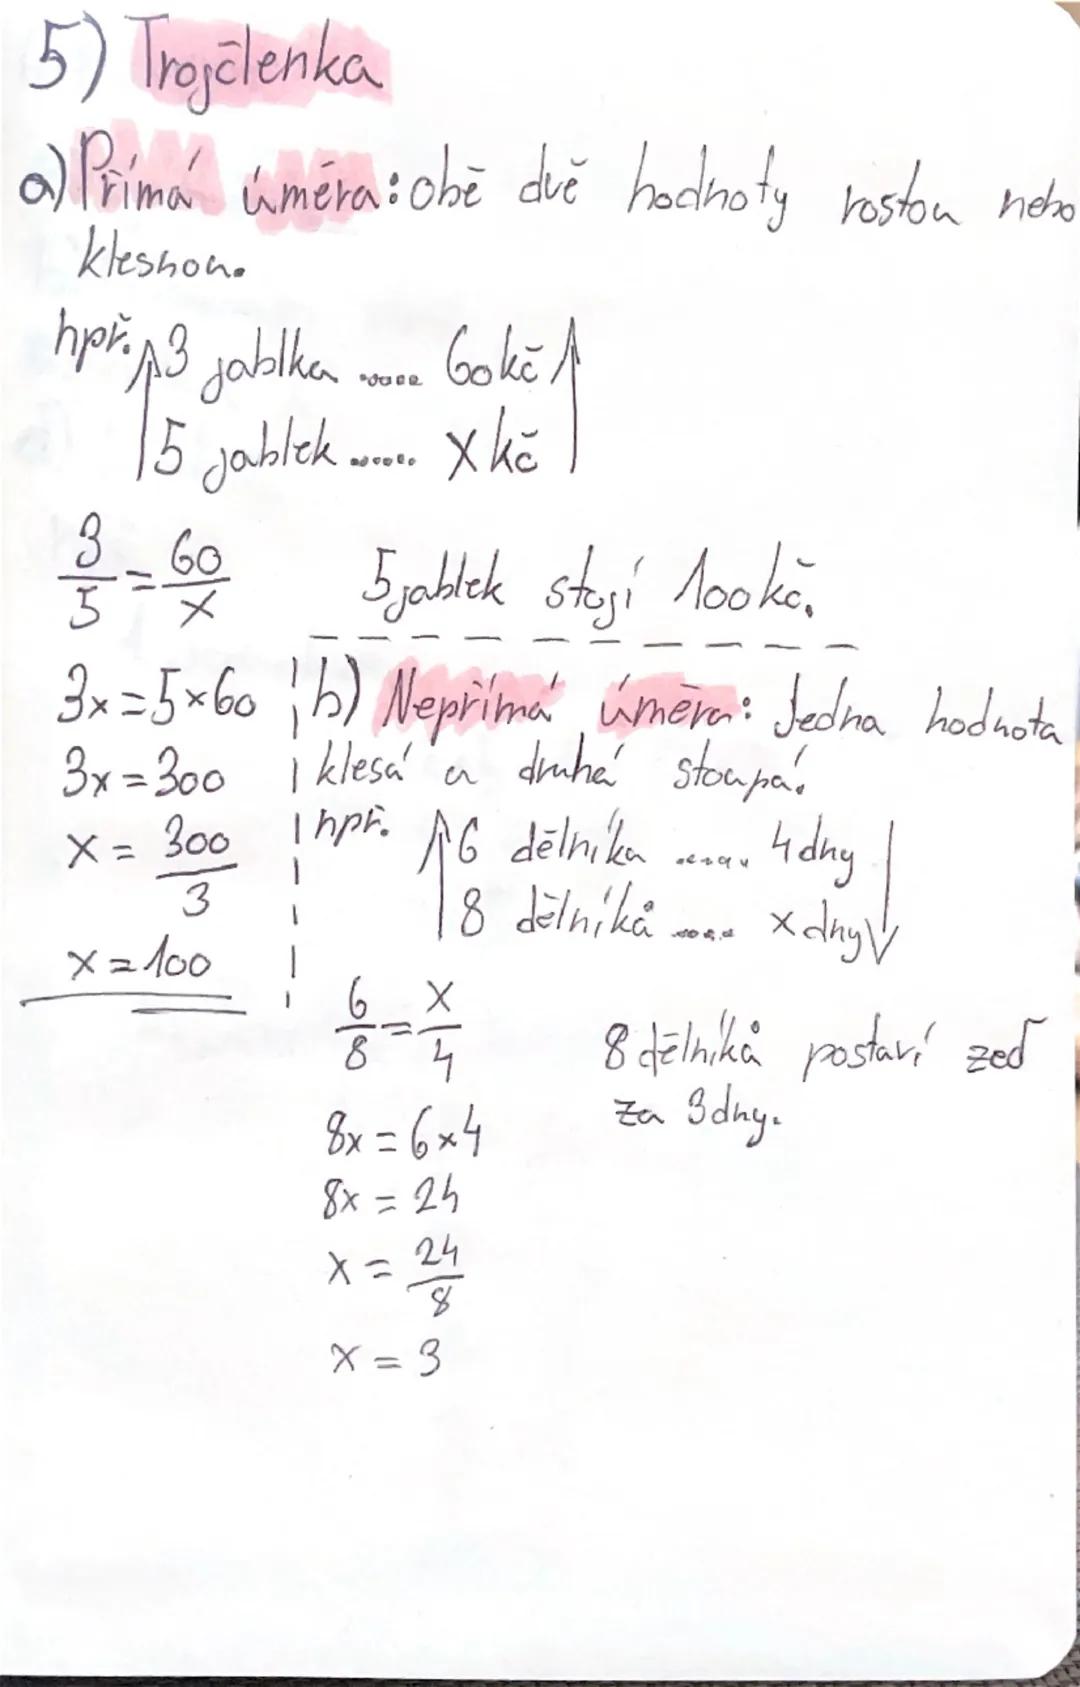 5) Trojčlenka
a) Přímá úměra: obě dvě hodnoty rostou nebo
klesnou.
npř. 3 jablka ..... 60kč
5 jablek ...... x kč
3/5 = 60/x
5 jablek stojí 100kč.
3x = 5×60
3x = 300
x = 300/3
x = 100
b) Nepřímá úměra: Jedna hodnota
klesá a druhá stoupá.
npř. 6 dělníka ...... 4 dny
8 dělníků ..... x dny
6/8 = x/4
8 dělníků postaví zeď
za 3 dny.
8x = 6×4
8x = 24
x = 24/8
x = 3